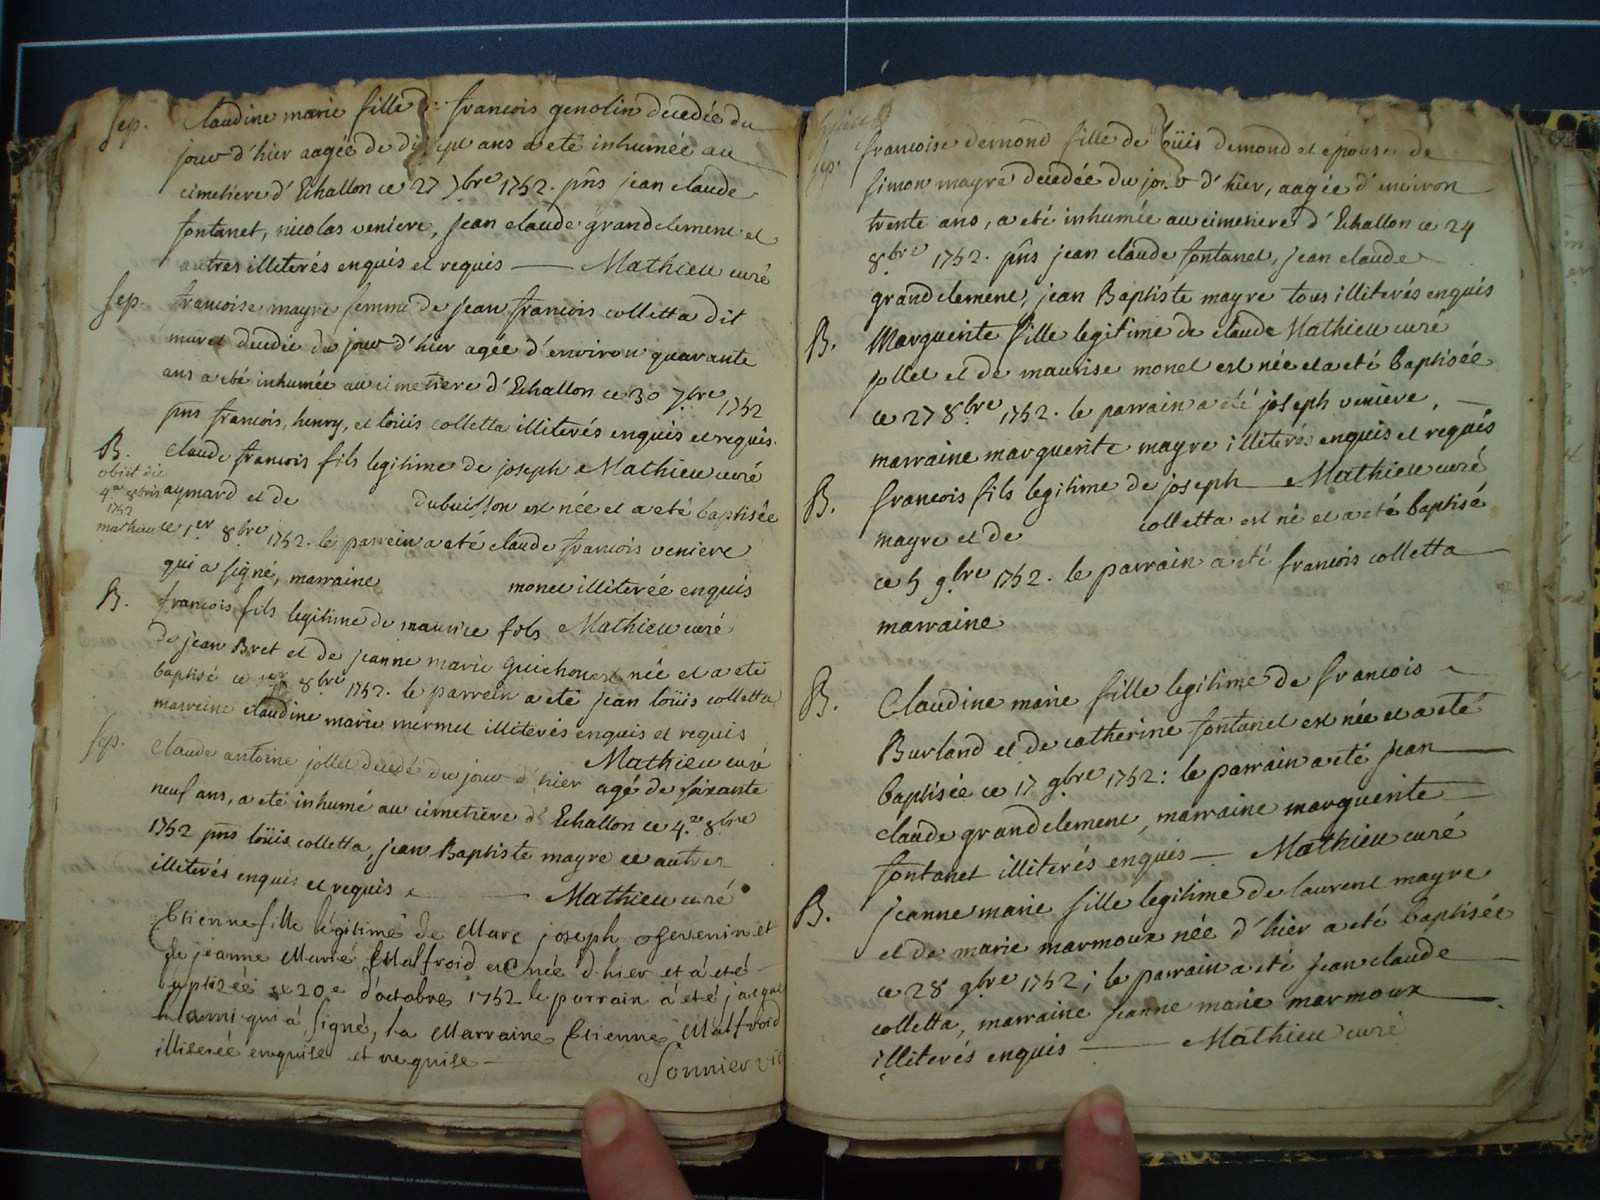 Sep. Claudine marie fille francois genolin decedée du
jour d'hier aagée de ans a eté inhumée au
cimetiere d'Echallon ce 27 7bre 1752. pns jean claude
fontanet, nicolas veniere, jean claude grandclement et
autres illiterés enquis et requis — Mathieu curé
Sep. francoise mayre femme de jean francois colletta dit
muret decedée du jour d'hier agée d'environ quarante
ans a eté inhumée au cimetiere d'Echallon ce 30 7bre 1752
pns francois, henry, et loüis colletta illiterés enquis et requis.
B. Claude francois fils legitime de joseph Mathieu curé
obiit die
4a 8bris aymard et de dubuisson est née et a eté baptisée
1752
mathieu ce 1er 8bre 1752. le parrein a eté claude francois veniere
qui a signé, marraine monet illiterée enquis
B. francois fils legitime de maurice fols Mathieu curé
de jean Bret et de jeanne marie guichon est née et a eté
baptisé ce 8bre 1752. le parrein a eté jean loüis colletta
marreine claudine marie mermet illiterés enquis et requis
Mathieu curé
Sep. Claude antoine jollet decedé du jour d'hier agé de soixante
neuf ans, a eté inhumé au cimetiere d'Echallon ce 4e 8bre
1752 pns loüis colletta, jean Baptiste mayre et autres
illiterés enquis et requis — Mathieu curé
Etienne fille légitime de Marc joseph et
de jeanne Marie Malfroid née d'hier et à été
baptizée ce 20e d'octobre 1752 le parrain à été jacque
qui à signé, la Marraine Etienne Malfroid
illiterée enquise et requise — Sonnier
Sep. francoise demond fille de loüis demond et epouse de
simon mayre decedée du jour d'hier, aagée d'environ
trente ans, a eté inhumée au cimetiere d'Echallon ce 24
8bre 1752. pns jean claude fontanet, jean claude
grandclement, jean Baptiste mayre tous illiterés enquis
B. Marguerite fille legitime de claude Mathieu curé
jollet et de maurise monet est née et a eté baptisée
ce 27 8bre 1752. le parrain a eté joseph veniere, —
marraine marguerite mayre illiterés enquis et requis
B. francois fils legitime de joseph — Mathieu curé
mayre et de colletta est né et a eté baptisé
ce 5 9bre 1752. le parrain a eté francois colletta
marraine
B. Claudine marie fille legitime de francois
Burland et de catherine fontanet est née et a eté
baptisée ce 17 9bre 1752: le parrain a eté jean
claude grandclement, marraine marguerite
fontanet illiterés enquis — Mathieu curé
B. jeanne marie fille legitime de laurent mayre
et de marie marmoux née d'hier a eté baptisée
ce 28 9bre 1752; le parrain a eté jean claude
colletta, marraine jeanne marie marmoux
illiterés enquis — Mathieu curé